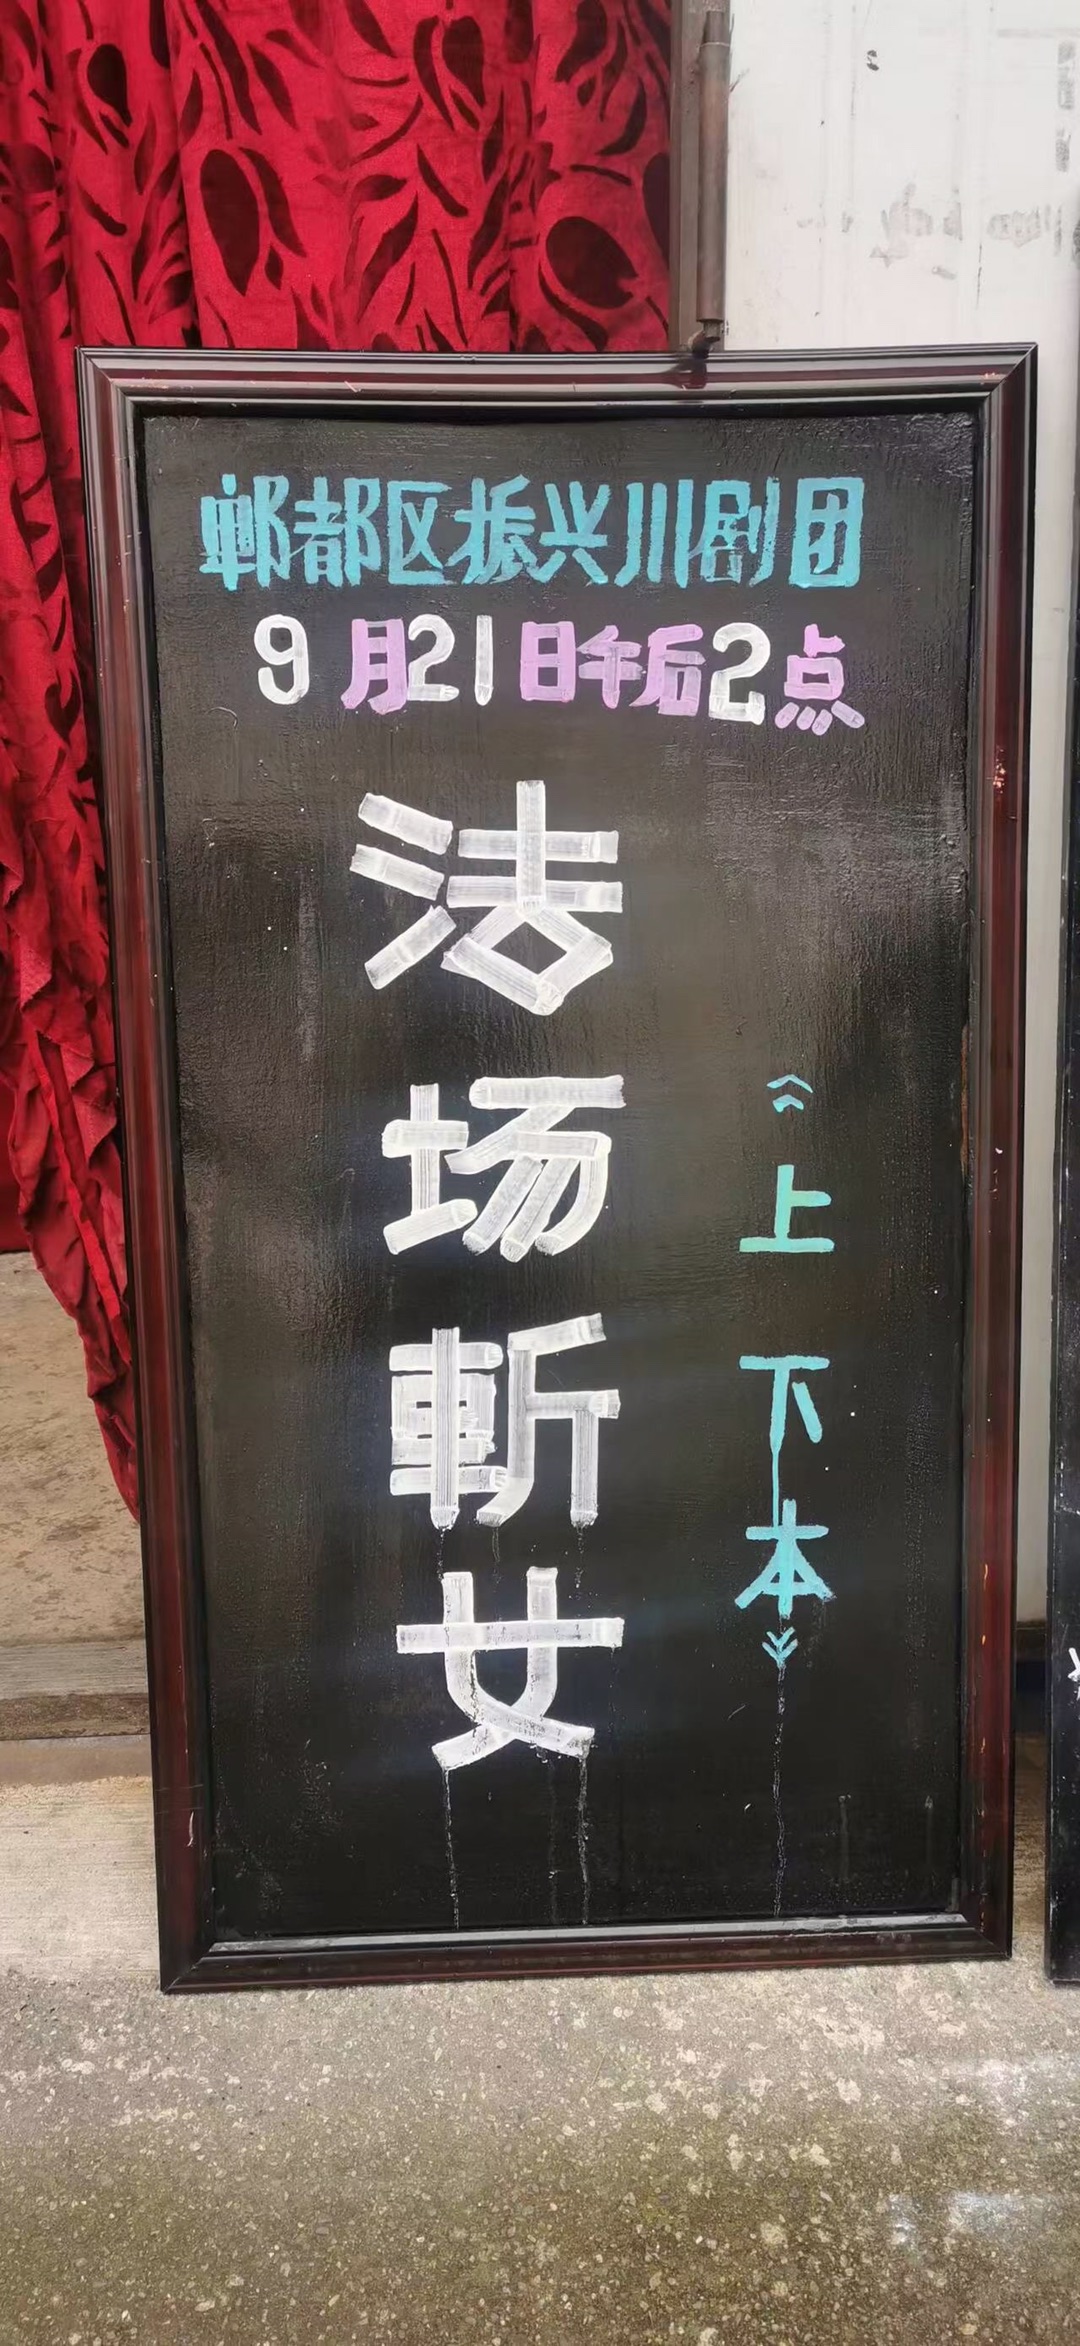 郫都区振兴川剧团
9月21日午后2点
法场斬女
《上下本》